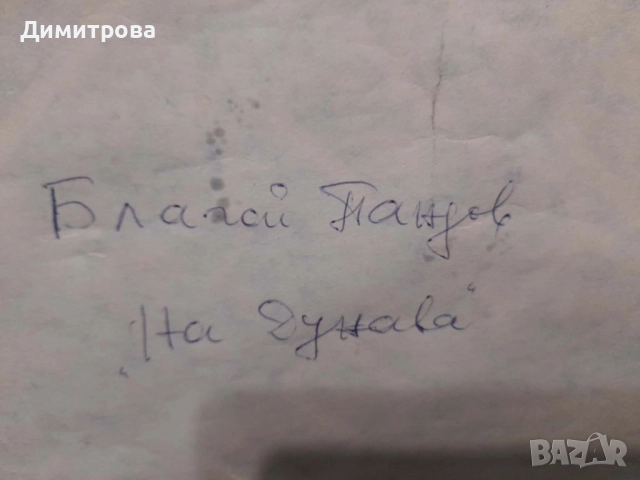 Димитрова
Благой Пандов
„На Дунава“
BAZAR